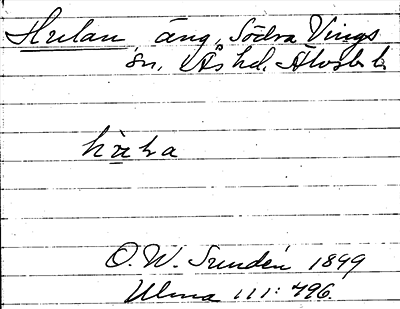 Hulan, äng, Södra Vings
sn, Ås hd. Älvsb. l.
O. W. Sundén 1899
Ulma 111:496.